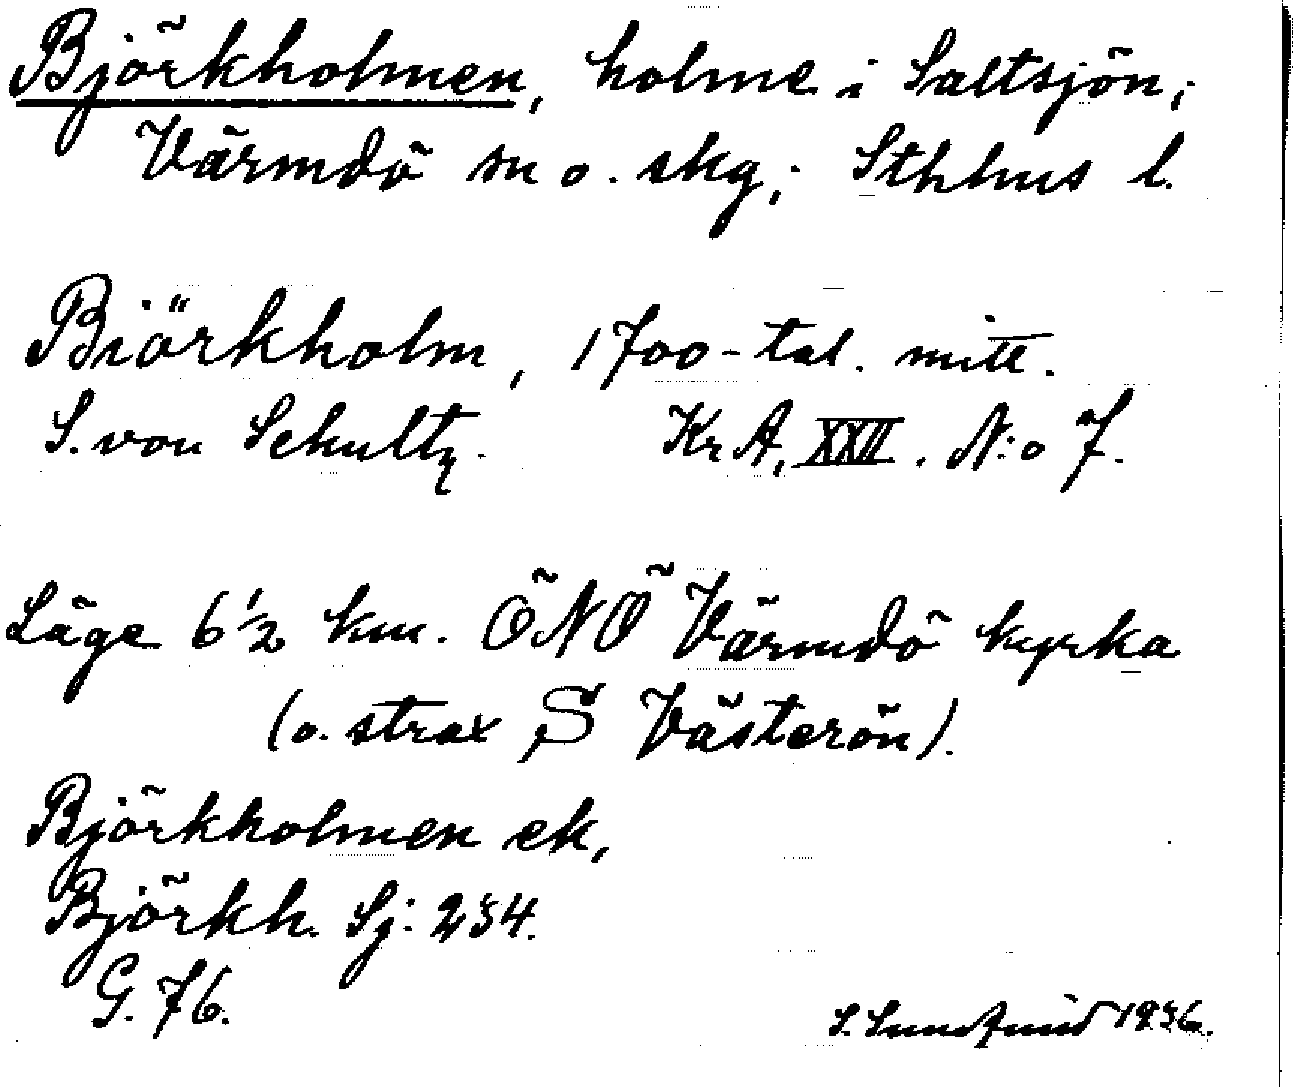 Björkholmen, holme i Saltsjön;
Värmdö sn o. skg; Sthhus l.
Biörkholm, 1700-tal. mitt.
S. von Schultz. KrA, XXII. N:o 7.
Läge 6 1/2 km. ÖNÖ Värmdö kyrka
(o. strax S Västerön).
Björkholmen ek,
Björkh. Sj: 234.
G. 76.
S. 1936.